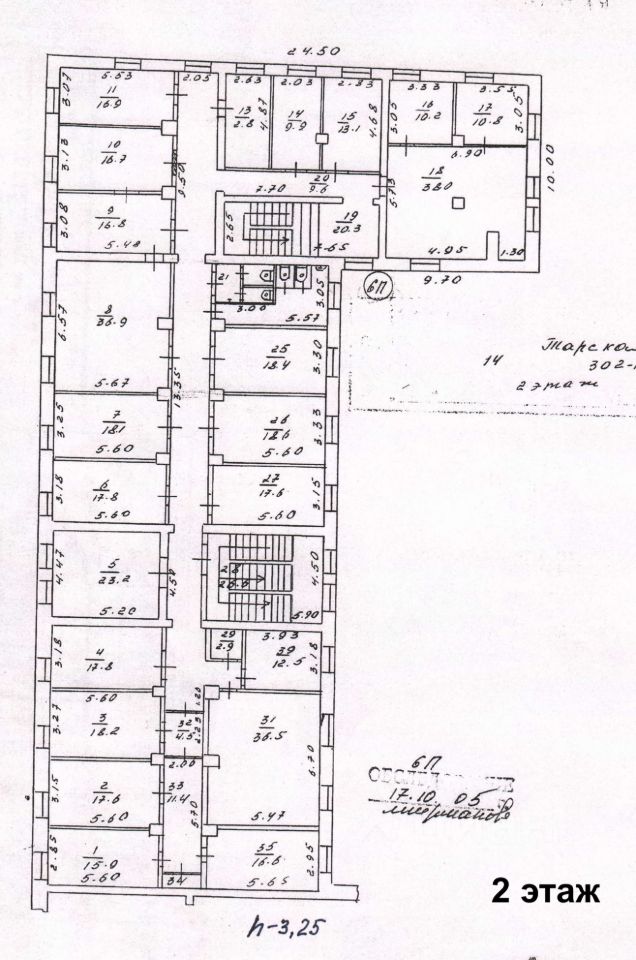 24.50
5.53
2.05
2.63
2.03
2.83
3.33
3.55
3.07
11
16.9
13
2.8
4.87
14
9.9
15
13.1
4.68
3.05
16
10.2
17
10.8
3.05
3.13
10
16.7
9.50
6.90
10.00
7.70
20
9.6
5.73
18
38.0
3.08
9
16.8
5.48
2.65
19
20.3
7.65
4.95
1.30
9.70
21
3.00
3.05
5.57
6П
6.57
8
36.9
5.67
13.35
25
18.4
3.30
14
302-
2 этаж
3.25
7
18.1
5.60
26
18.6
5.60
3.33
3.18
6
17.8
5.60
27
17.6
5.60
3.15
4.47
5
23.2
5.20
4.50
28
26.6
4.50
5.90
29
2.9
3.93
3.18
4
17.8
5.60
12.5
3.18
1.20
3.27
3
18.2
32
4.5
2.23
2.00
31
36.5
6.70
3.15
2
17.6
5.60
33
11.4
5.70
5.47
6П
17.10 05
2.85
1
15.9
5.60
34
35
16.6
5.65
2.95
2 этаж
h-3,25